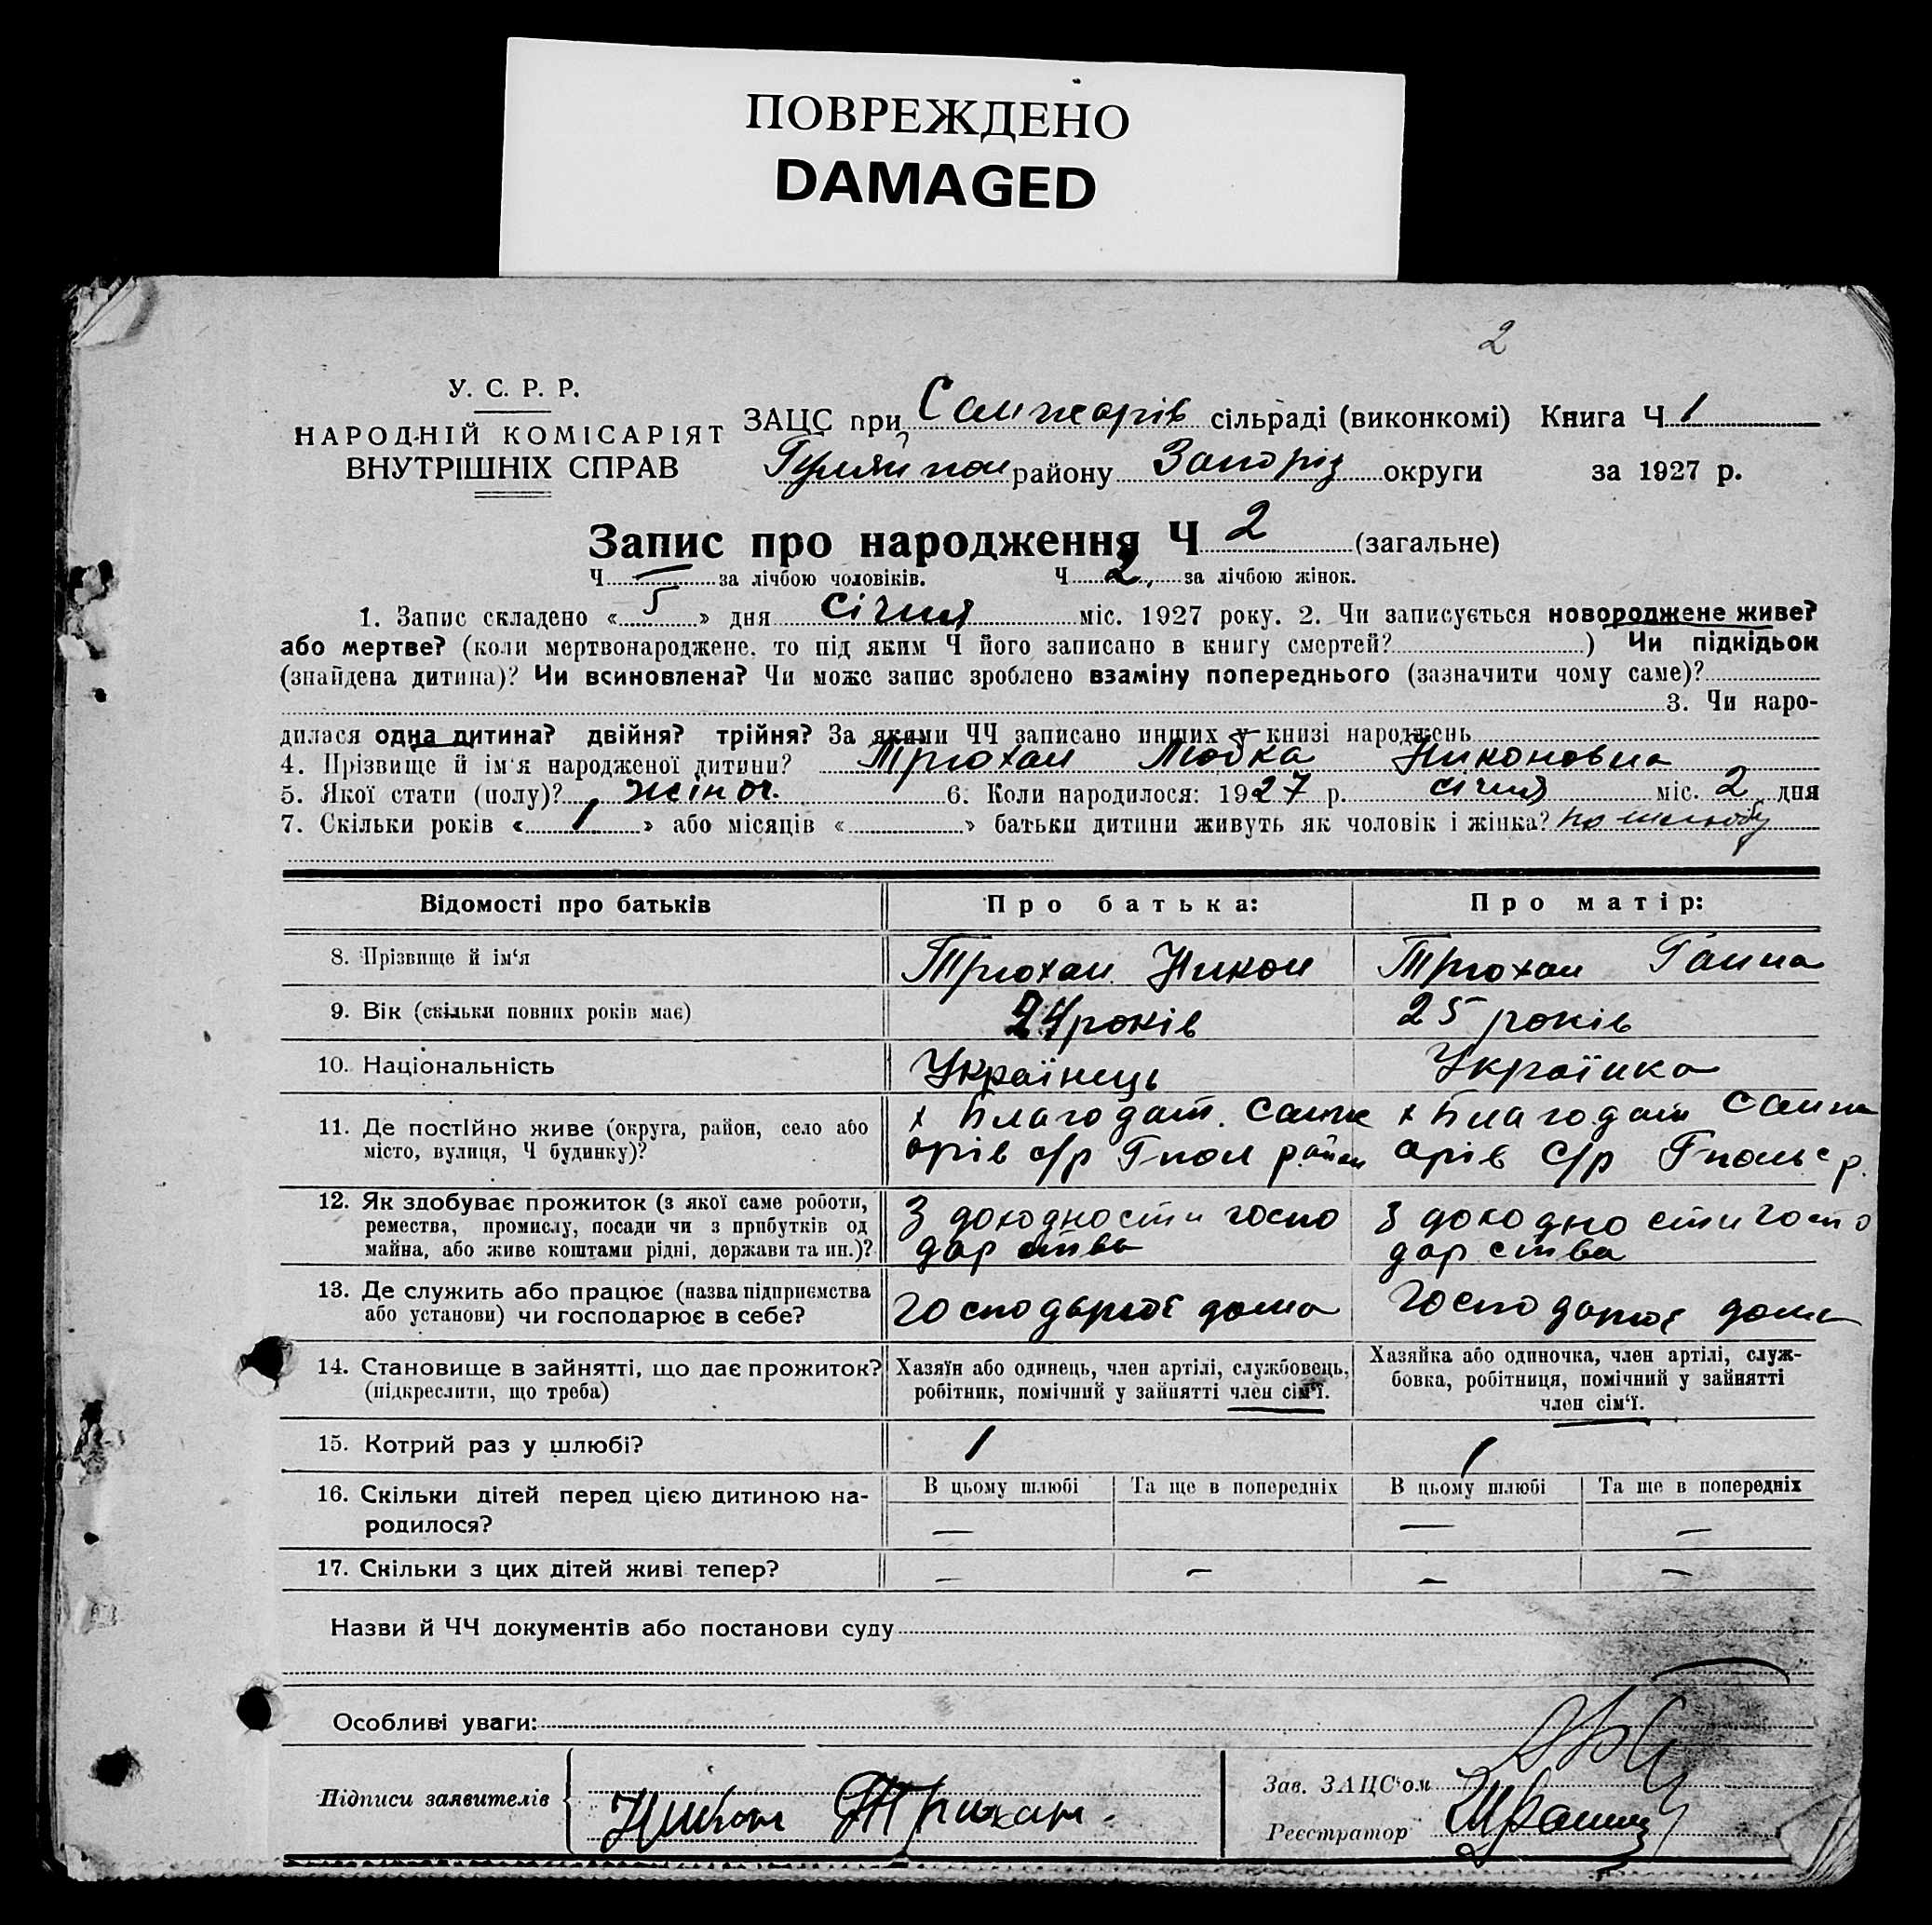 ПОВРЕЖДЕНО
DAMAGED
2
У. С. Р. Р.
НАРОДНІЙ КОМІСАРІЯТ
ВНУТРІШНІХ СПРАВ
ЗАЦС при Санжарів сільраді (виконкомі) Книга Ч 1
Гуляйпол району Запоріз округи за 1927 р.
Запис про народження Ч 2 (загальне)
Ч — за лічбою чоловіків. Ч 2, за лічбою жінок.
1. Запис складено « 5 » дня січня міс. 1927 року. 2. Чи записується новороджене живе?
або мертве? (коли мертвонароджене, то під яким Ч його записано в книгу смертей? ) Чи підкідьок
(знайдена дитина)? Чи всиновлена? Чи може запис зроблено взаміну попереднього (зазначити чому саме)?
3. Чи наро-
дилася одна дитина? двійня? трійня? За якими ЧЧ записано инших у книзі народжень —
4. Прізвище й ім'я народженої дитини? Трюхан Любка Никоновна
5. Якої стати (полу)? жіноч. 6. Коли народилося: 1927 р. січня міс. 2 дня
7. Скільки років « 1 » або місяців « » батьки дитини живуть як чоловік і жінка? по шлюбу
Відомості про батьків Про батька: Про матір:
8. Прізвище й ім'я Трюхан Никон Трюхан Ганна
9. Вік (скільки повних років має) 24 років 25 років
10. Національність Українець Українка
11. Де постійно живе (округа, район, село або місто, вулиця, Ч будинку)?
х Благодат. Санж
арів с/р Гпол район
х Благодат Санж
арів с/р Гпольс р.
12. Як здобуває прожиток (з якої саме роботи,
ремества, промислу, посади чи з прибутків од
майна, або живе коштами рідні, держави та ин.)?
З доходности госпо
дарства
З доходности госпо
дарства
13. Де служить або працює (назва підприємства
або установи) чи господарює в себе?
господарює дома
господарює дома
14. Становище в зайнятті, що дає прожиток?
(підкреслити, що треба)
Хазяїн або одинець, член артілі, службовець,
робітник, помічний у зайнятті член сім'ї.
Хазяйка або одиночка, член артілі, служ-
бовка, робітниця, помічний у зайнятті
член сім'ї.
15. Котрий раз у шлюбі? 1 1
16. Скільки дітей перед цією дитиною на-
родилося?
В цьому шлюбі Та ще в попередніх В цьому шлюбі Та ще в попередніх
— — —
17. Скільки з цих дітей живі тепер? — — — —
Назви й ЧЧ документів або постанови суду
Особливі уваги:
Підписи заявителів Никон Трюхан.
Зав. ЗАЦС'ом
Реєстратор